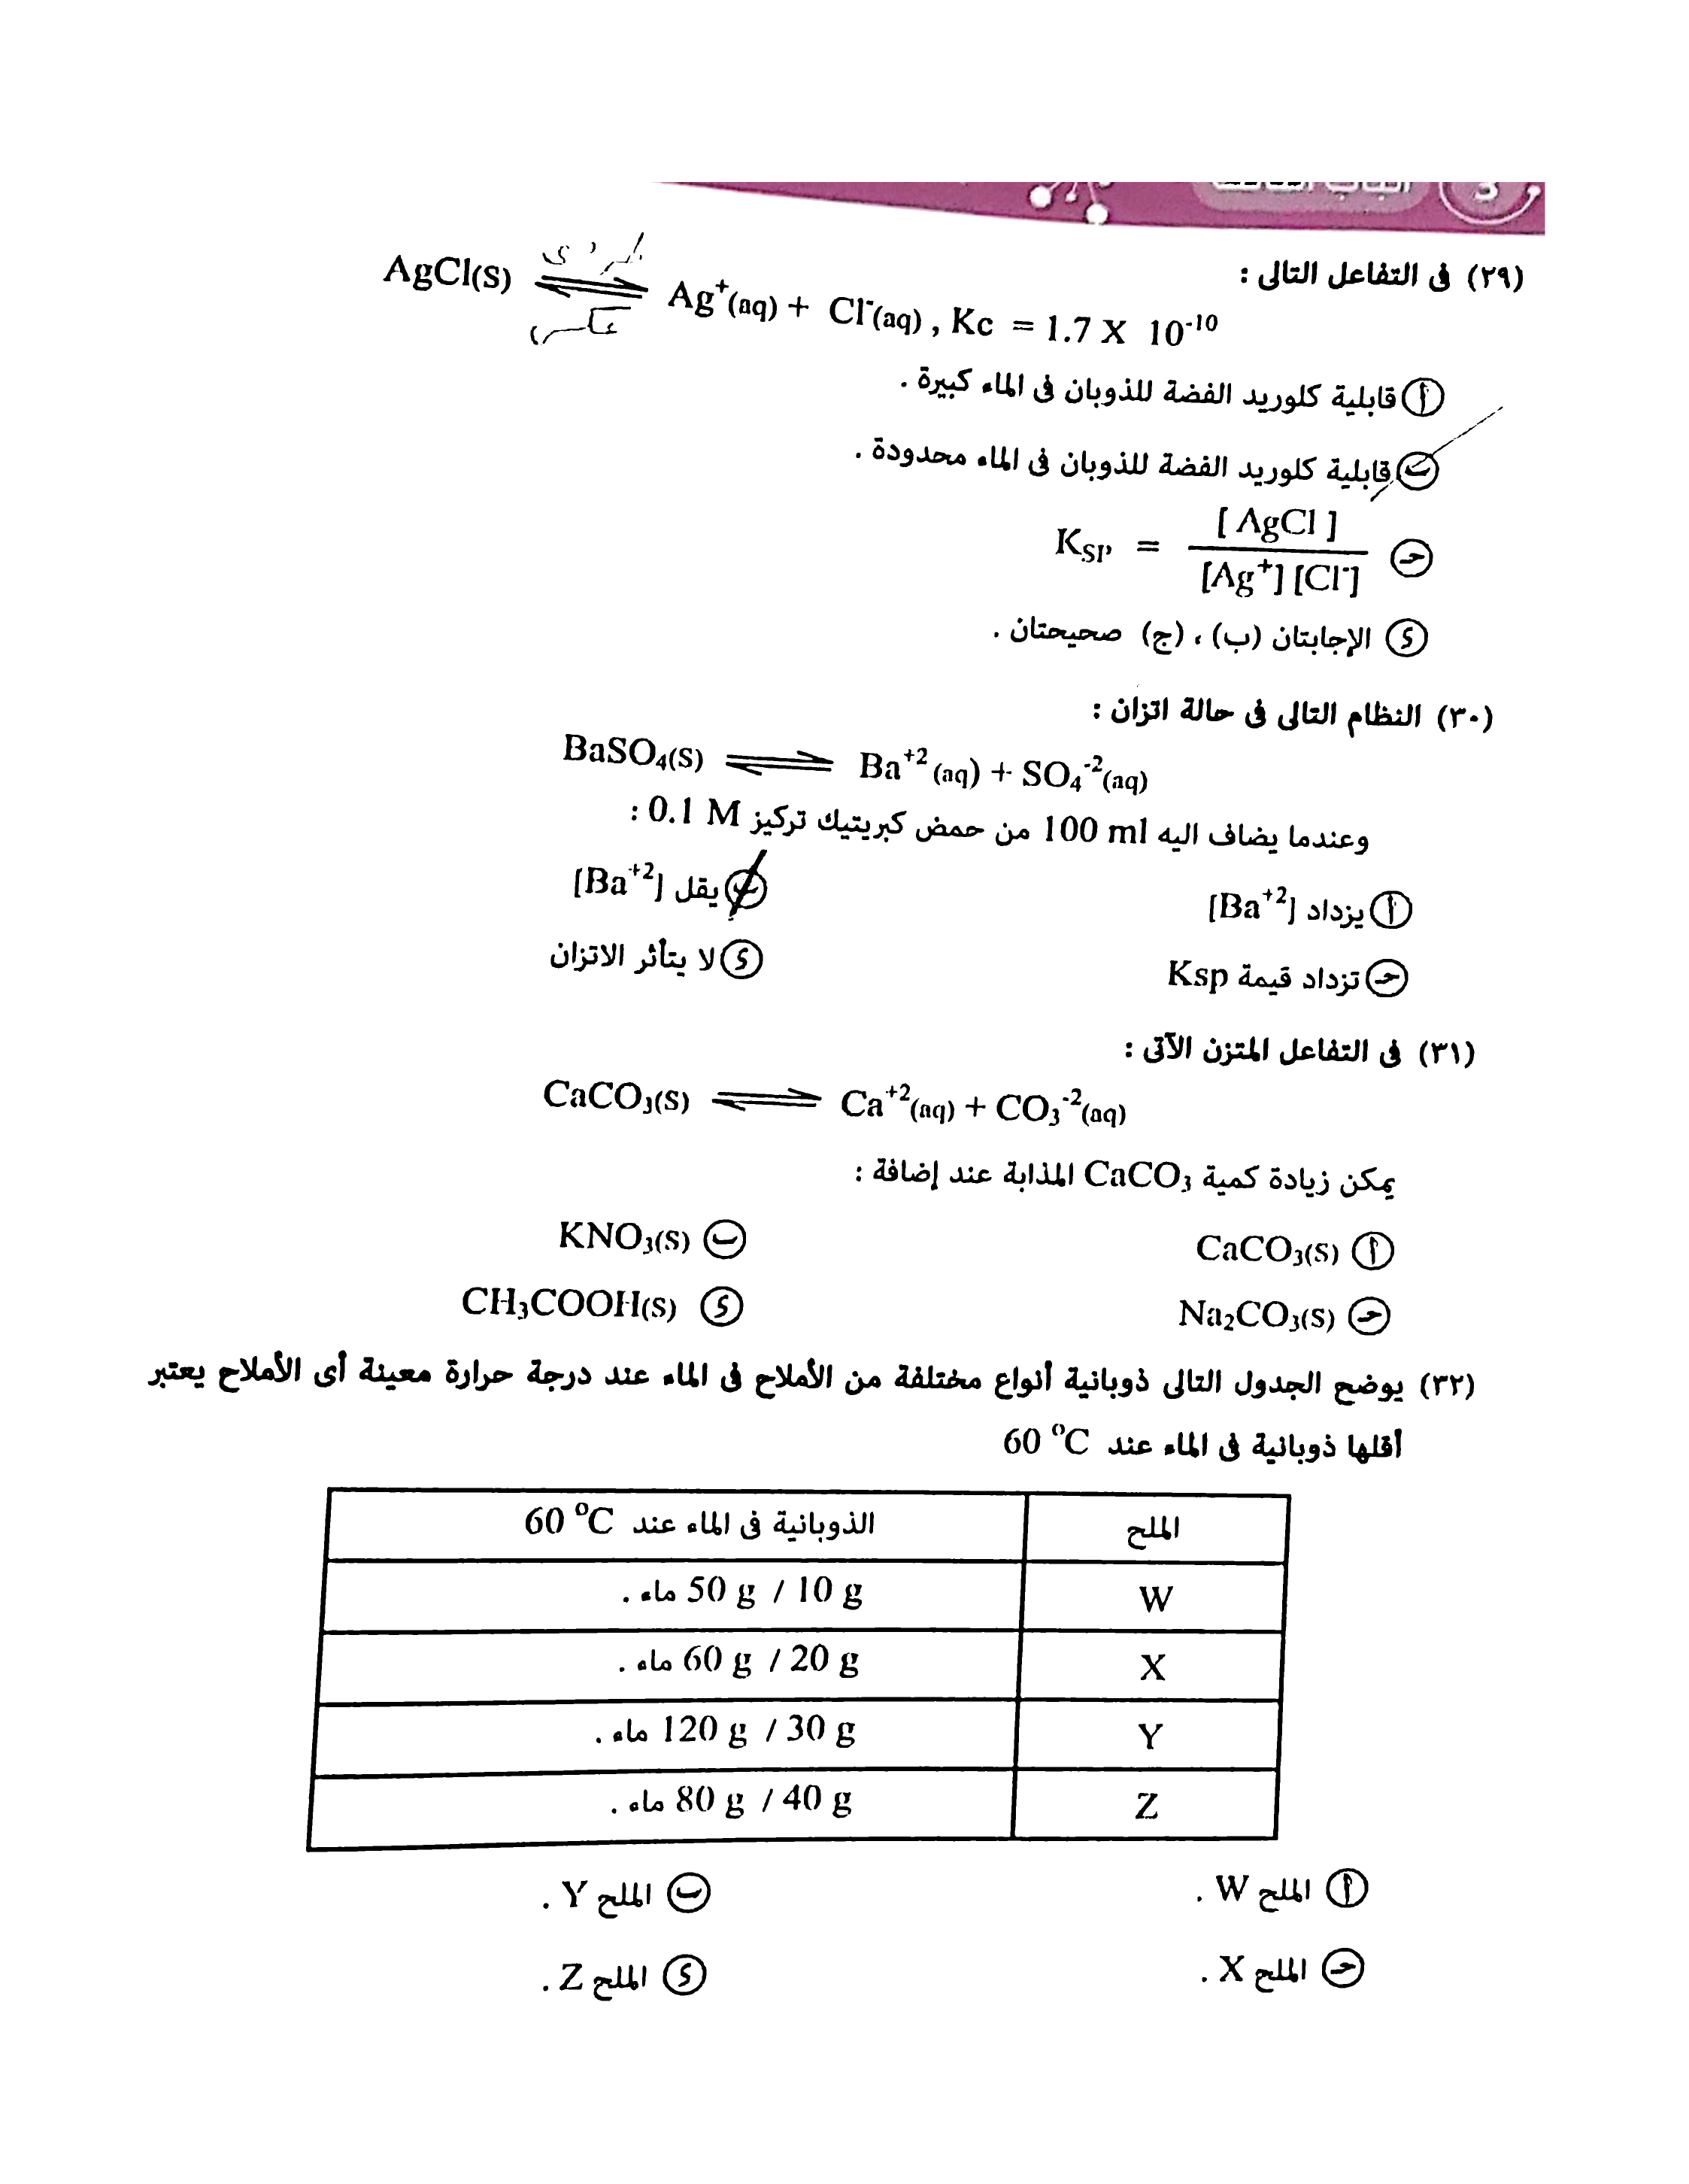 (٢٩) فى التفاعل التالى :
AgCl(S) ⇌ Ag⁺(aq) + Cl⁻(aq) , Kc = 1.7 X 10⁻¹⁰
أ قابلية كلوريد الفضة للذوبان فى الماء كبيرة .
ب قابلية كلوريد الفضة للذوبان فى الماء محدودة .
جـ K_SP = [ AgCl ] / [Ag⁺] [Cl⁻]
د الإجابتان (ب) ، (ج) صحيحتان .
(٣٠) النظام التالى فى حالة اتزان :
BaSO₄(S) ⇌ Ba⁺² (aq) + SO₄⁻²(aq)
وعندما يضاف اليه 100 ml من حمض كبريتيك تركيز 0.1 M :
أ يزداد [Ba⁺²] ب يقل [Ba⁺²]
جـ تزداد قيمة Ksp د لا يتأثر الاتزان
(٣١) فى التفاعل المتزن الآتى :
CaCO₃(S) ⇌ Ca⁺²(aq) + CO₃⁻²(aq)
يمكن زيادة كمية CaCO₃ المذابة عند إضافة :
أ CaCO₃(S) ب KNO₃(S)
جـ Na₂CO₃(S) د CH₃COOH(S)
(٣٢) يوضح الجدول التالى ذوبانية أنواع مختلفة من الأملاح فى الماء عند درجة حرارة معينة أى الأملاح يعتبر
أقلها ذوبانية فى الماء عند 60 °C
الملح الذوبانية فى الماء عند 60 °C
W 10 g / 50 g ماء .
X 20 g / 60 g ماء .
Y 30 g / 120 g ماء .
Z 40 g / 80 g ماء .
أ الملح W . ب الملح Y .
جـ الملح X . د الملح Z .